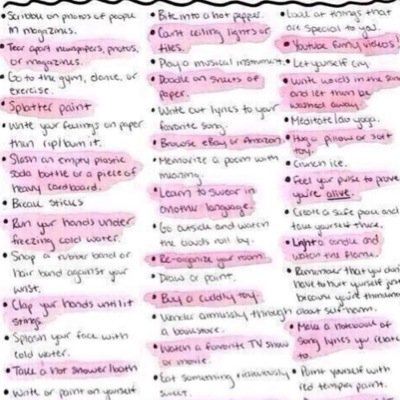 • Scribble on photos of people
in magazines.
• Tear apart newspapers, photos,
or magazines.
• Go to the gym, dance, or
exercise.
• Splatter paint
• Write your feelings on paper
then rip/burn it.
• Slash an empty plastic
soda bottle or a piece of
heavy cardboard.
• Break sticks
• Run your hands under
freezing cold water.
• Snap a rubber band or
hair band against your
wrist.
• Clap your hands until it
stings.
• Splash your face with
cold water.
• Take a hot shower/bath
• Write or paint on yourself.
• Bite into a hot pepper.
• Count ceiling lights or
tiles.
• Play a musical instrument.
• Doodle on sheets of
paper.
• Write out lyrics to your
favorite song.
• Browse eBay or Amazon
• Memorize a poem with
meaning.
• Learn to swear in
another language.
• Go outside and watch
the clouds roll by.
• Re-organize your room.
• Draw or paint.
• Buy a cuddly toy.
• Wander aimlessly through
a bookstore.
• Watch a favorite TV show
or movie.
• Eat something ridiculously
sweet.
• Look at things that
are special to you.
• Youtube funny videos!
• Let yourself cry
• Write words in the
and let them be
washed away.
• Meditate/do yoga.
• Hug a pillow or soft
toy.
• Crunch ice.
• Feel your pulse to prove
you're alive.
• Create a safe place and
take yourself there.
• Light a candle and
watch the flame.
• Remember that you don't
have to hurt yourself just
because you're thinking
about self-harm.
• Make a notebook of
song lyrics you relate
to.
• Paint yourself with
red temper paint.